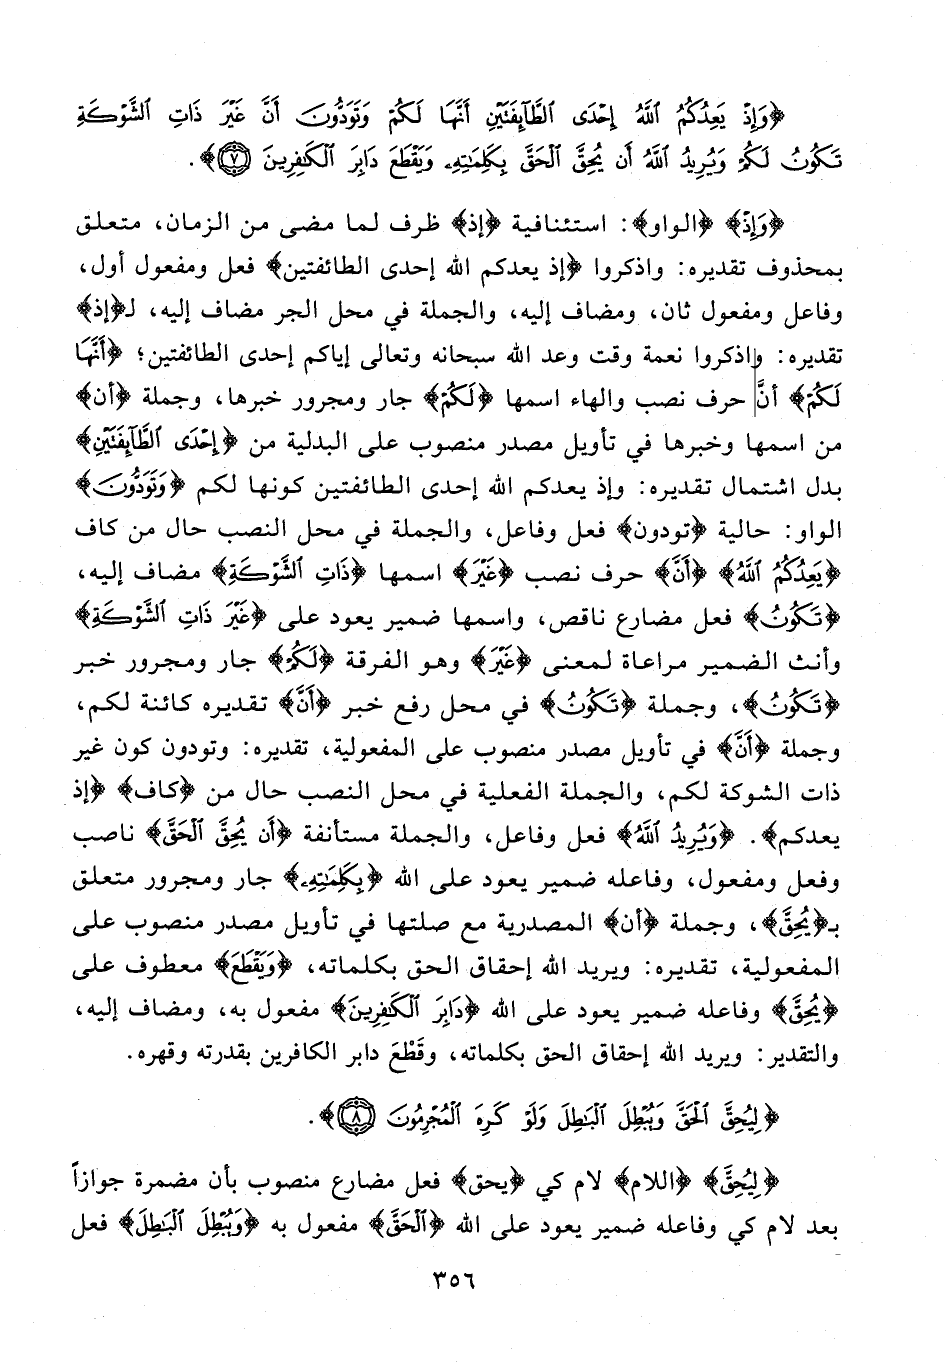 ﴿وَإِذْ يَعِدُكُمُ ٱللَّهُ إِحْدَى ٱلطَّآئِفَتَيْنِ أَنَّهَا لَكُمْ وَتَوَدُّونَ أَنَّ غَيْرَ ذَاتِ ٱلشَّوْكَةِ
تَكُونُ لَكُمْ وَيُرِيدُ ٱللَّهُ أَن يُحِقَّ ٱلْحَقَّ بِكَلِمَٰتِهِۦ وَيَقْطَعَ دَابِرَ ٱلْكَٰفِرِينَ ٧﴾.
﴿وَإِذْ﴾ ﴿الواو﴾: استئنافية ﴿إذ﴾ ظرف لما مضى من الزمان، متعلق
بمحذوف تقديره: واذكروا ﴿إذ يعدكم الله إحدى الطائفتين﴾ فعل ومفعول أول،
وفاعل ومفعول ثان، ومضاف إليه، والجملة في محل الجر مضاف إليه، لـ﴿إذ﴾
تقديره: واذكروا نعمة وقت وعد الله سبحانه وتعالى إياكم إحدى الطائفتين؛ ﴿أَنَّهَا
لَكُمْ﴾ أنَّ حرف نصب والهاء اسمها ﴿لَكُمْ﴾ جار ومجرور خبرها، وجملة ﴿أن﴾
من اسمها وخبرها في تأويل مصدر منصوب على البدلية من ﴿إِحْدَى ٱلطَّآئِفَتَيْنِ﴾
بدل اشتمال تقديره: وإذ يعدكم الله إحدى الطائفتين كونها لكم ﴿وَتَوَدُّونَ﴾
الواو: حالية ﴿تودون﴾ فعل وفاعل، والجملة في محل النصب حال من كاف
﴿يَعِدُكُمُ ٱللَّهُ﴾ ﴿أَنَّ﴾ حرف نصب ﴿غَيْرَ﴾ اسمها ﴿ذَاتِ ٱلشَّوْكَةِ﴾ مضاف إليه،
﴿تَكُونُ﴾ فعل مضارع ناقص، واسمها ضمير يعود على ﴿غَيْرَ ذَاتِ ٱلشَّوْكَةِ﴾
وأنث الضمير مراعاة لمعنى ﴿غَيْرَ﴾ وهو الفرقة ﴿لَكُمْ﴾ جار ومجرور خبر
﴿تَكُونُ﴾، وجملة ﴿تَكُونُ﴾ في محل رفع خبر ﴿أَنَّ﴾ تقديره كائنة لكم،
وجملة ﴿أَنَّ﴾ في تأويل مصدر منصوب على المفعولية، تقديره: وتودون كون غير
ذات الشوكة لكم، والجملة الفعلية في محل النصب حال من ﴿كاف﴾ ﴿إذ
يعدكم﴾. ﴿وَيُرِيدُ ٱللَّهُ﴾ فعل وفاعل، والجملة مستأنفة ﴿أَن يُحِقَّ ٱلْحَقَّ﴾ ناصب
وفعل ومفعول، وفاعله ضمير يعود على الله ﴿بِكَلِمَٰتِهِۦ﴾ جار ومجرور متعلق
بـ﴿يُحِقَّ﴾، وجملة ﴿أن﴾ المصدرية مع صلتها في تأويل مصدر منصوب على
المفعولية، تقديره: ويريد الله إحقاق الحق بكلماته، ﴿وَيَقْطَعَ﴾ معطوف على
﴿يُحِقَّ﴾ وفاعله ضمير يعود على الله ﴿دَابِرَ ٱلْكَٰفِرِينَ﴾ مفعول به، ومضاف إليه،
والتقدير: ويريد الله إحقاق الحق بكلماته، وقَطْعَ دابر الكافرين بقدرته وقهره.
﴿لِيُحِقَّ ٱلْحَقَّ وَيُبْطِلَ ٱلْبَٰطِلَ وَلَوْ كَرِهَ ٱلْمُجْرِمُونَ ٨﴾.
﴿لِيُحِقَّ﴾ ﴿اللام﴾ لام كي ﴿يحق﴾ فعل مضارع منصوب بأن مضمرة جوازاً
بعد لام كي وفاعله ضمير يعود على الله ﴿ٱلْحَقَّ﴾ مفعول به ﴿وَيُبْطِلَ ٱلْبَٰطِلَ﴾ فعل
٣٥٦